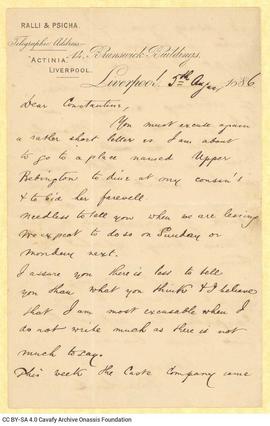 RALLI & PSICHA.
Telegraphic Address
"ACTINIA"
LIVERPOOL.
14, Brunswick Buildings,
Liverpool, 5th Augt, 1886
Dear Constantine,
You must excuse again
a rather short letter as I am about
to go to a place named Upper
Bebington to dine at my cousin's
& to bid her farewell
Needless to tell you when we are leaving
We expect to do so on Sunday or
Monday next.
I assure you there is less to tell
you than what you think & I believe
that I am most excusable when I
do not write much as there is not
much to say.
This week the Caste Company came
CC BY-SA 4.0 Cavafy Archive Onassis Foundation